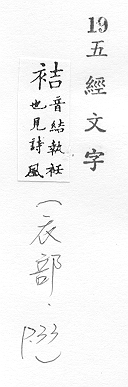 19五經文字
袺音結執衽
也見詩風
(衣部.
P.33)